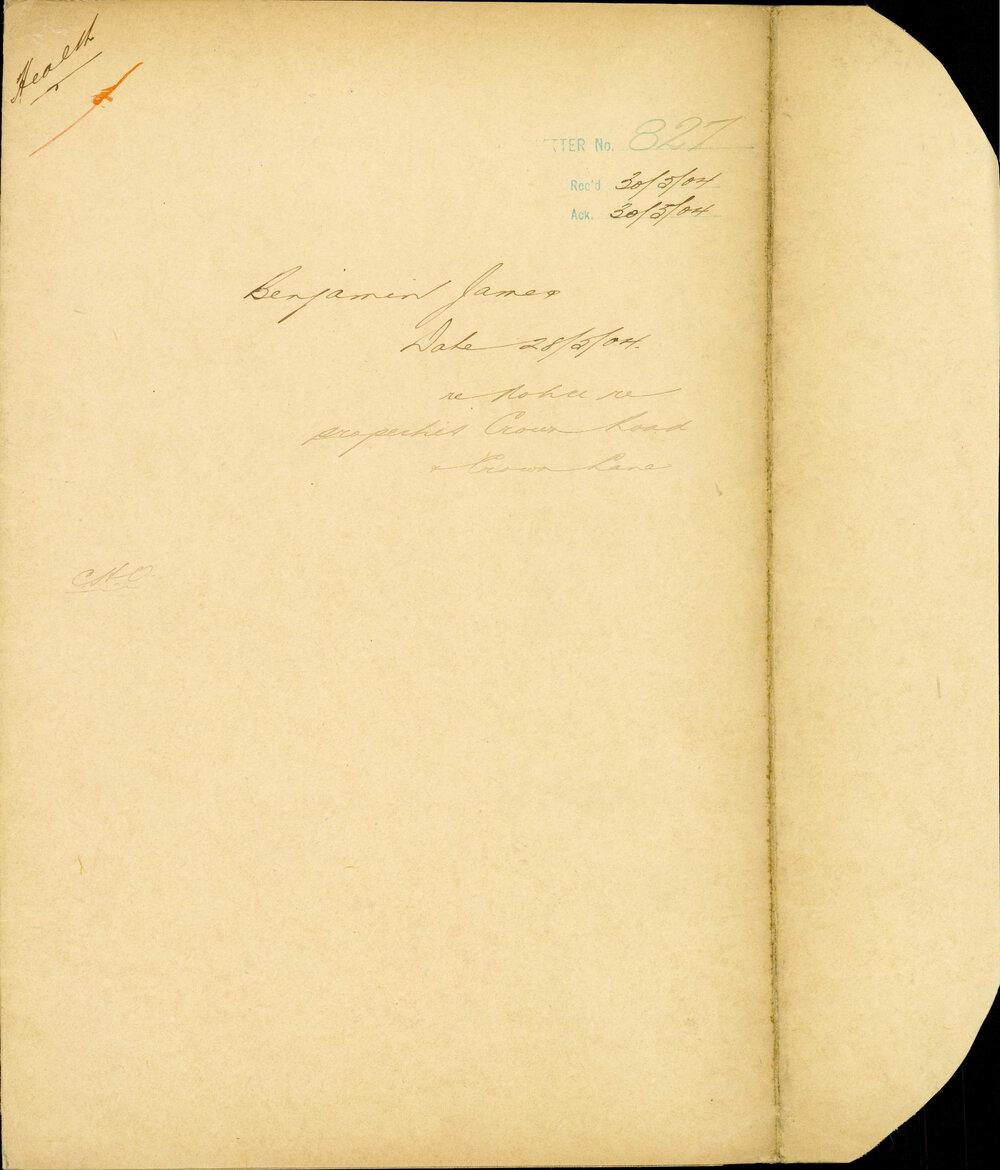 Health
LETTER No. 827
Rec'd 30/5/04
Ack. 30/5/04
Benjamin James
Date 28/5/04.
re Notice re
properties Crown Road
& Crown Lane
C.H.O